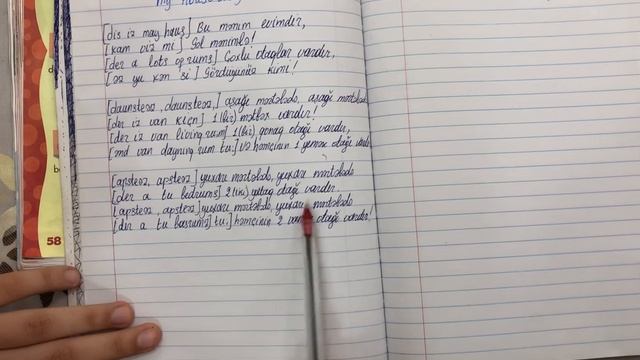 My house
[dis iz may hauz] Bu mənim evimdir,
[kam viz mi] Gəl mənimlə!
[der a lots of rums] Çoxlu otaqlar vardır,
[əz yu kən si] Gördüyünüz kimi!
[daunsteəz, daunsteəz,] aşağı mərtəbədə, aşağı mərtəbədə
[der iz van kiçn] 1(bir) mətbəx vardır!
[der iz van living rum] 1(bir) qonaq otağı vardır,
[ənd van dayning rum tu:] və həmçinin 1 yemək otağı
[apsteəz, apsteəz] yuxarı mərtəbədə, yuxarı mərtəbədə
[der a tu bedrums] 2(iki) yataq otağı vardır.
[apsteəz, apsteəz] yuxarı mərtəbədə, yuxarı mərtəbədə
[der a tu basrumz] tu:] həmçinin 2 otağı vardır!
58